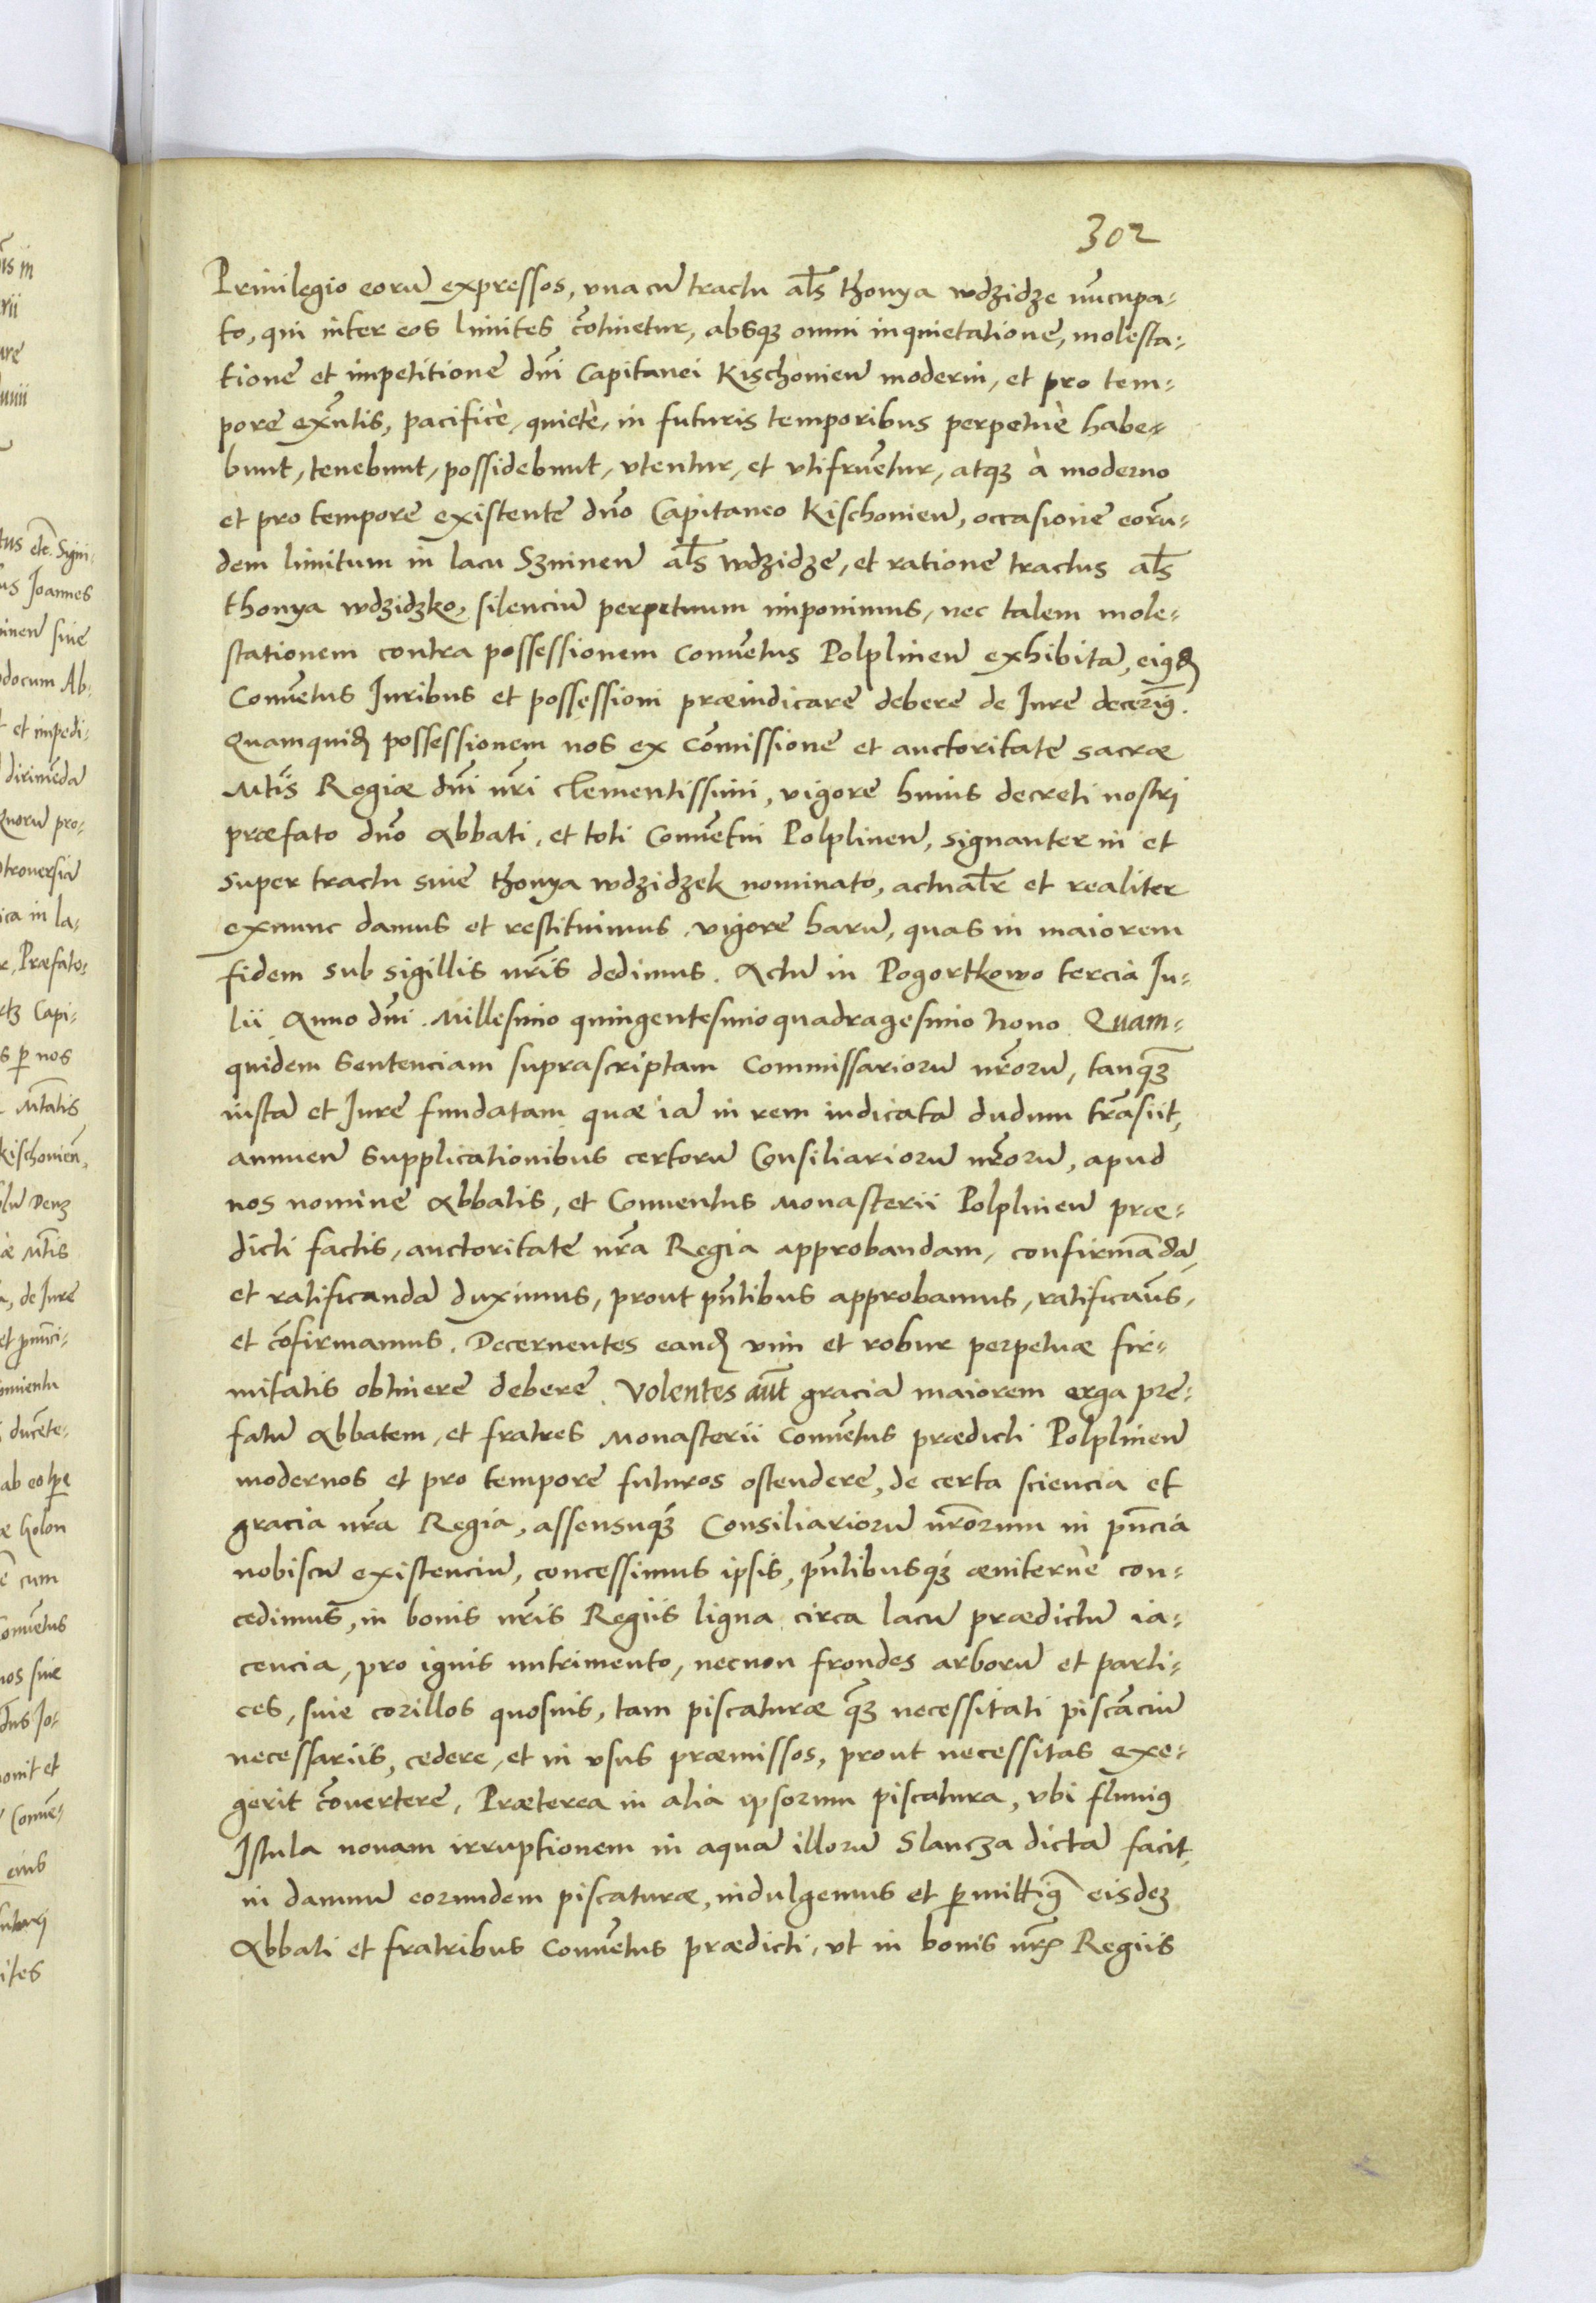 302
Priuilegio eorũ expressos, vna cũ tractu al̃s thonya wdzidze nũcupa-
to, qui inter eos limites cõtinetur, absq́ꝫ omni inquietatione, molesta-
tione et impetitione dñi Capitanei Kischonieñ moderni, et pro tem-
pore exñtis, pacificè, quietè, in futuris temporibus perpetuè habe-
bunt, tenebunt, possidebunt, vtentur, et vtifruẽtur, atqꝫ à moderno
et pro tempore existente dño Capitaneo Kischonieñ, occasione eorũ-
dem limitum in lacu Szmineñ al̃s wdzidze, et ratione tractus al̃s
thonya wdzidzko, silenciũ perpetuum imponimus, nec talem mole-
stationem contra possessionem Conuẽtus Polplineñ exhibitã, eiusđ
Conuẽtus Juribus et possessioni præiudicare debere de Jure decernimꝰ.
Quamquiđ possessionem nos ex Cõmissione et auctoritate sacræ
Mtĩs Regiæ dñi nr̃i clementissimi, vigore huius decreti nostri
præfato dño Abbati, et toti Conuẽtui Polplineñ, signanter in et
super tractu siue thonya wdzidzek nominato, actual̃r et realiter
exnunc damus et restituimus, vigore harũ, quas in maiorem
fidem sub sigillis nr̃is dedimus. Actũ in Pogortkowo tercia Ju-
lii Anno dñi. Millesimo quingentesimo quadragesimo nono. Quam-
quidem Sentenciam suprascriptam Commissariorũ nr̃orũ, tanq̃ꝫ
iustã et Jure fundatam quæ iã in rem iudicatã dudum trãsiit,
annueñ Supplicationibus certorũ Consiliariorũ nr̃orũ, apud
nos nomine Abbatis, et Conuentus Monasterii Polplineñ præ-
dicti factis, auctoritate nr̃a Regia approbandam, confirmãdã,
et ratificandã duximus, prout pñtibus approbamus, ratificaũs,
et cõfirmamus. Decernentes eanđ vim et robur perpetuæ fir-
mitatis obtinere debere. Volentes aũt graciã maiorem erga præ-
fatũ Abbatem, et fratres Monasterii Conuẽtus prædicti Polplineñ
modernos et pro tempore futuros ostendere, de certa sciencia et
gracia nr̃a Regia, assensuq́ꝫ Consiliariorũ nr̃orum in pñcia
nobiscũ existenciũ, concessimus ipsis, pñtibusq́ꝫ æuiternè con-
cedimus, in bonis nr̃is Regiis ligna circa lacũ prædictũ ia-
cencia, pro ignis nutrimento, necnon frondes arborũ et parti-
ces, siue corillos quosuis, tam piscaturæ q̃ꝫ necessitati piscãciũ
necessariis, cedere, et in vsus præmissos, prout necessitas exe-
gerit cõuertere. Præterea in alia ipsorum piscatura, vbi fluuiꝰ
Istula nouam irruptionem in aquã illorũ Slancza dictã facit,
in damnũ eorundem piscaturæ, indulgemus et ꝑmittimꝰ eisdeꝫ
Abbati et fratribus Conuẽtus prædicti, vt in bonis nr̃is Regiis